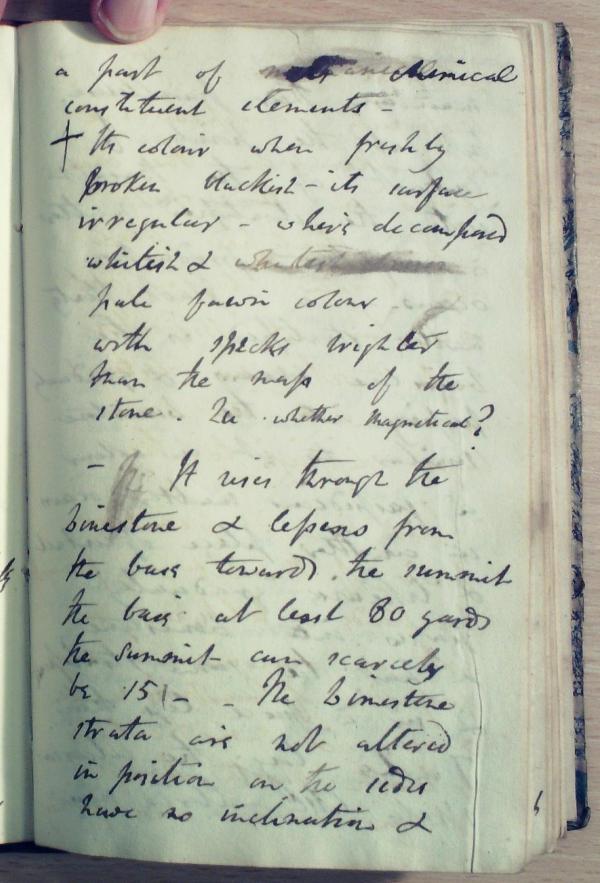 a part of chemical
constituent elements -
+ Its colour when freshly
broken blackish - its surface
irregular - when decomposed
whitish &
pale fawn colour
with specks brighter
than the mass of the
stone. Qu whether magnetical?
- It rises through the
limestone & lessens from
the base towards the summit
the base at least 80 yards
the summit can scarcely
be 15 - - The limestone
strata are not altered
in position on the sides
have no inclination &